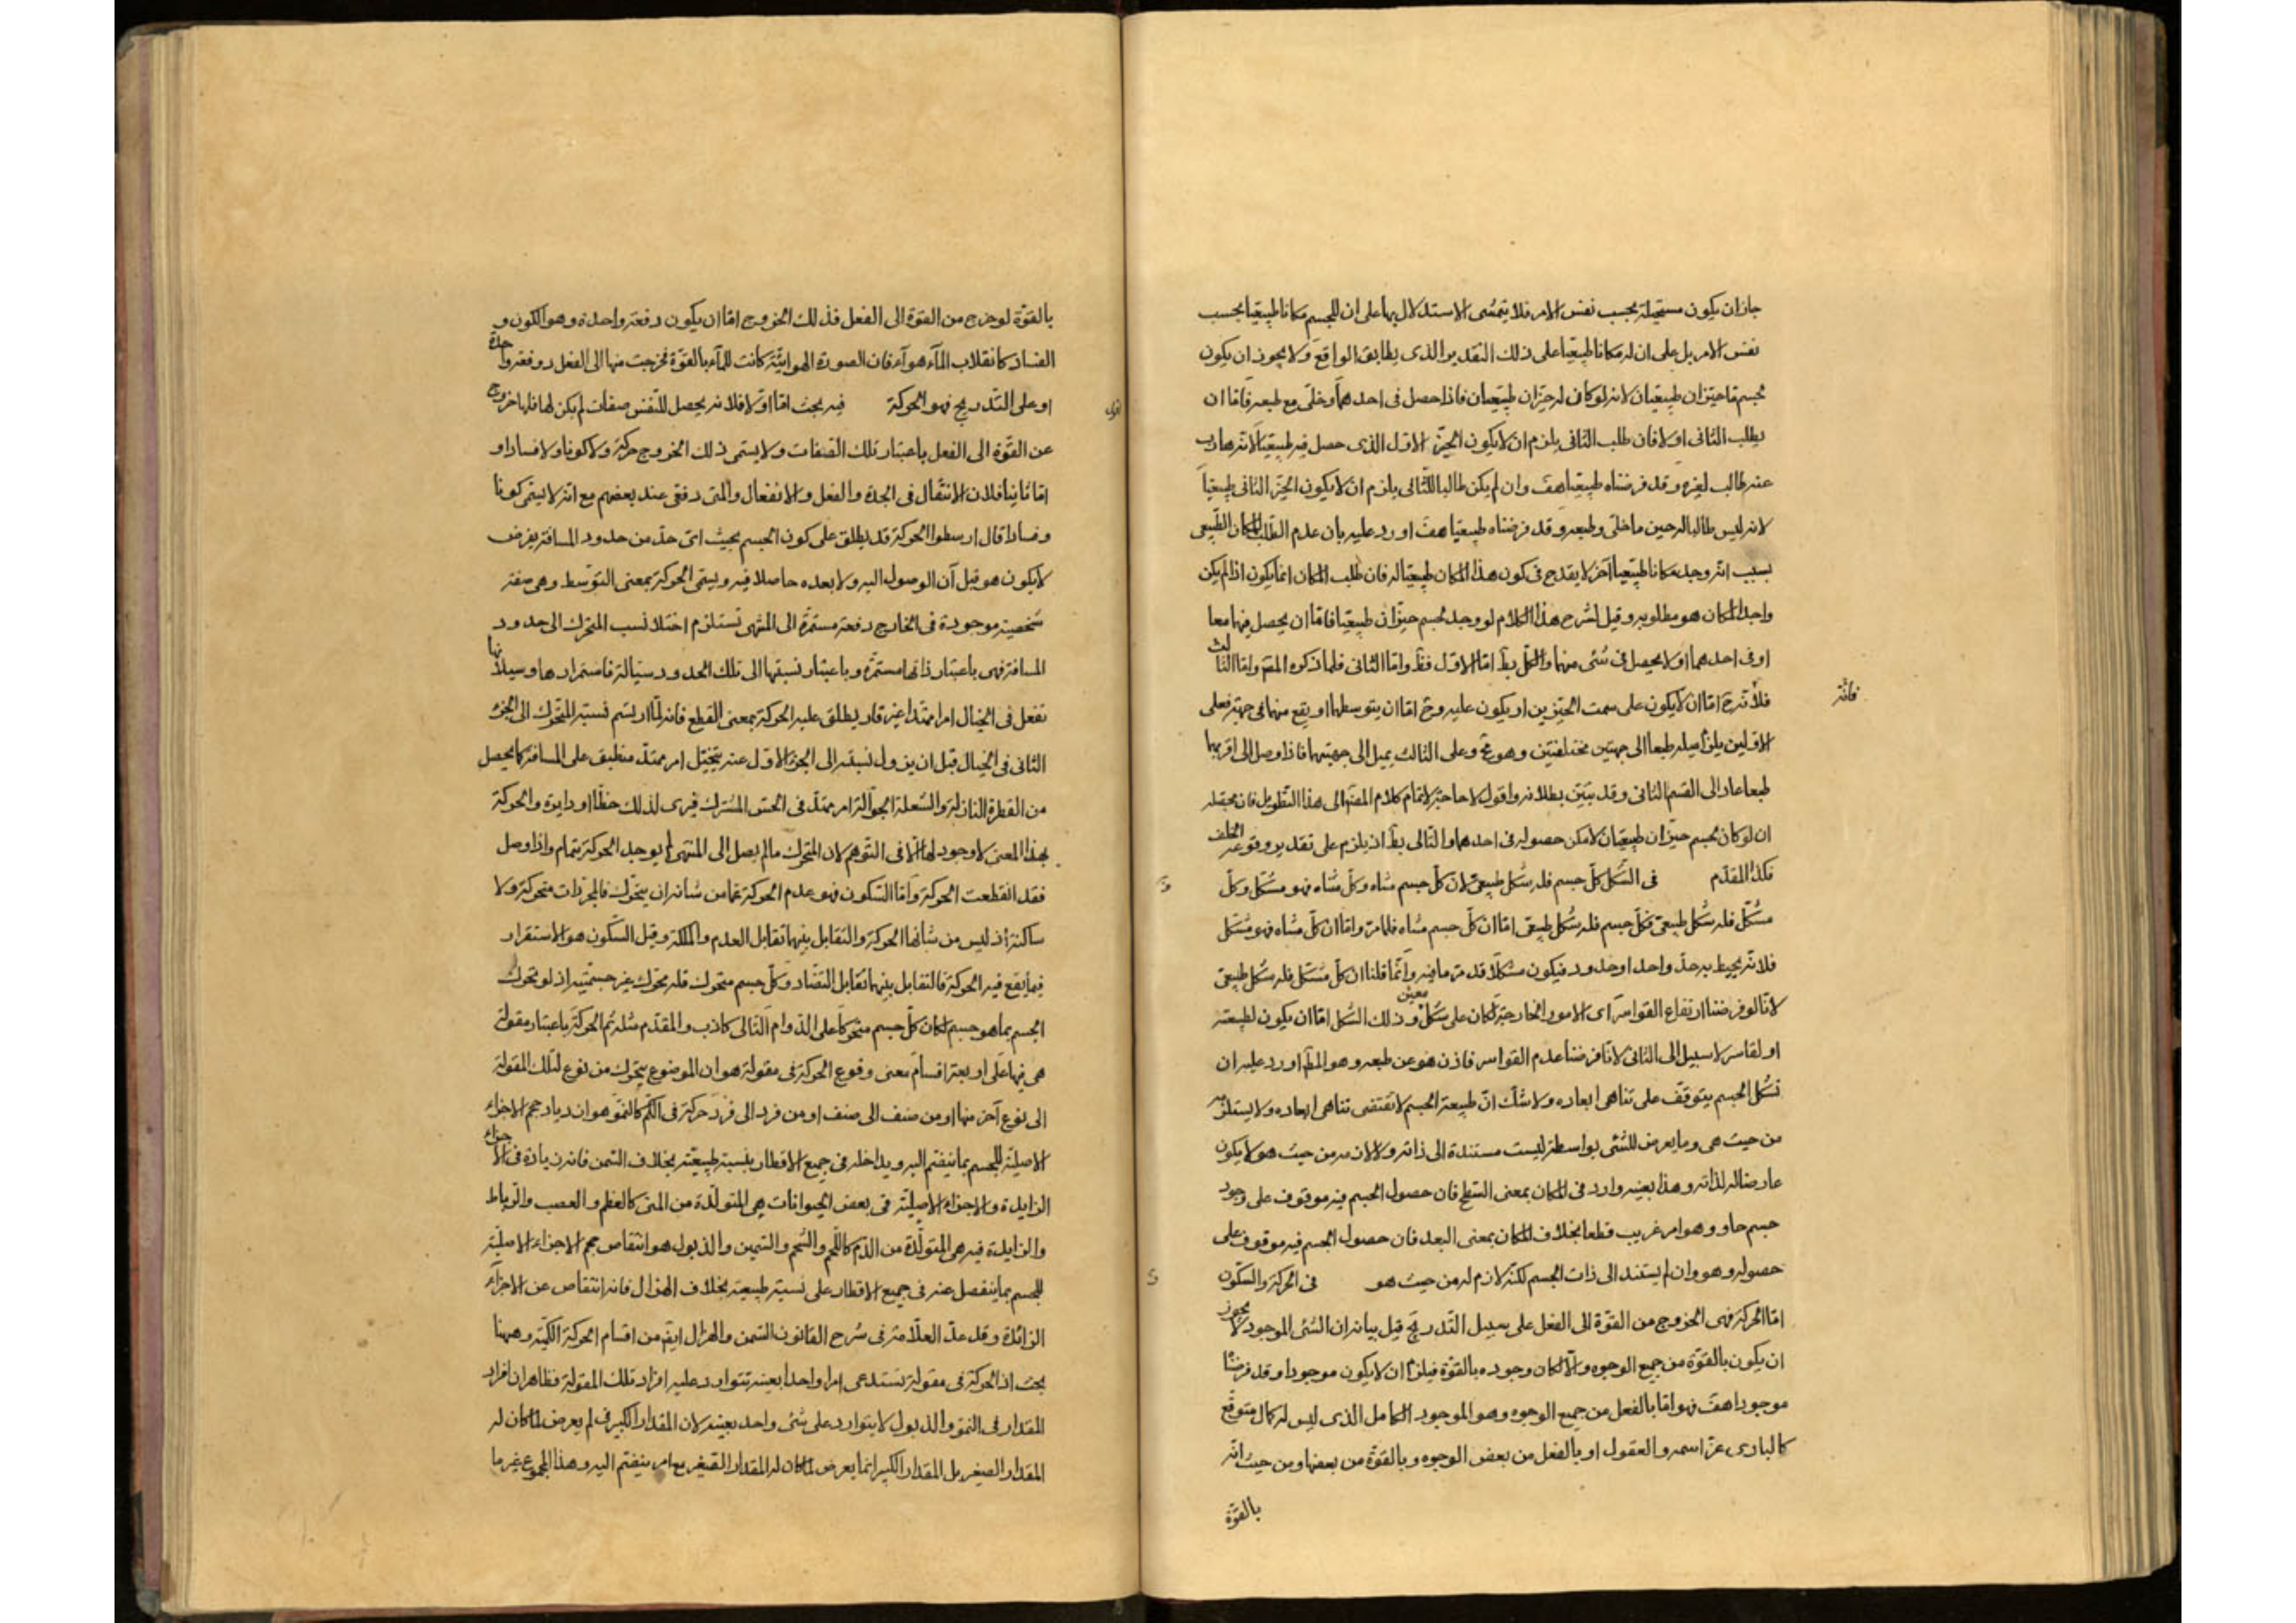 جاز ان يكون مستحيلة بحسب نفس الامر فلا يتمشى الاستدلال بها على ان للجسم مكانا طبيعيا بحسب
نفس الامر بل على ان له مكانا طبيعيا على ذلك التقدير والذى يطابق الواقع ولا يجوز ان يكون
لجسم ما حيزان طبيعيان لانه لو كان له حيزان طبيعيان فاذا حصل فى احدهما وخلى مع طبعه فاما ان
يطلب الثانى اولا فان طلب الثانى يلزم ان لا يكون الحيز الاول الذى حصل فيه طبيعيا لانه هارب
عنه طالب لغيره وقد فرضناه طبيعيا هف وان لم يكن طالبا للثانى يلزم ان لا يكون الحيز الثانى طبيعيا
لانه ليس طالبا له حين ما خلى وطبعه وقد فرضناه طبيعيا هف اورد عليه بان عدم الطلب للمكان الطبيعى
بسبب انه وجد مكانا طبيعيا آخر لا يقدح فى كون هذا المكان طبيعيا له فان طلب المكان انما يكون اذا لم يكن
واجدا لمكان هو مطلوبه وقيل لشرح هذا الكلام لو وجد لجسم حيزان طبيعيا فاما ان يحصل فيهما معا
او فى احدهما او لا يحصل فى شئ منهما والكل بط اما الاول فظ واما الثانى فلما ذكره المص واما الثالث
فلانه ح اما ان لا يكون على سمت الحيزين او يكون عليه وح اما ان يتوسطهما او يقع منهما فى جهة فعلى
فانه
الاولين يلزم ميله طبعا الى جهتين مختلفتين وهو مح وعلى الثالث يميل الى جهتيهما فاذا وصل الى اقربهما
طبعا عاد الى القسم الثانى وقد تبين بطلانه واقول لا حاجة لاتمام كلام المص الى هذا التطويل فان محصله
ان لو كان لجسم حيزان طبيعيان لامكن حصوله فى احدهما والتالى بط اذ يلزم على تقدير وقوعه الخلف
فكذا المقدم فى الشكل كل جسم فله شكل طبيعى لان كل جسم متناه وكل متناه فهو مشكل وكل
مشكل فله شكل طبيعى فكل جسم فله شكل طبيعى اما ان كل جسم متناه فلما مر واما ان كل متناه فهو مشكل
فلانه يحيط به حد واحد او حدود فيكون مشكلا قد مر ما فيه وانما قلنا ان كل مشكل فله شكل طبيعى
لانا لو فرضنا ارتفاع القواسر اى الامور الخارجية لكان على شكل معين وذلك الشكل اما ان يكون لطبيعته
او لقاسر لا سبيل الى الثانى لانا فرضنا عدم القواسر فاذن هو عن طبعه وهو المط اورد عليه ان
تشكل الجسم يتوقف على تناهى ابعاده ولا شك ان طبيعة الجسم لا تقتضى تناهى ابعاده ولا يستلزمه
من حيث هى وما يعرض للشئ بواسطة ليست مستندة الى ذاته ولا لازمه من حيث هو لا يكون
عارضا له لذاته وهذا بعينه وارد فى المكان بمعنى السطح فان حصول الجسم فيه موقوف على وجود
جسم حاو وهو امر غريب قطعا بخلاف المكان بمعنى البعد فان حصول الجسم فيه موقوف على
حصوله وهو وان لم يستند الى ذات الجسم لكنه لازم له من حيث هو فى الحركة والسكون
اما الحركة فهى الخروج من القوة الى الفعل على سبيل التدريج قيل بيانه ان الشئ الموجود لا يجوز
ان يكون بالقوة من جميع الوجوه والا لكان وجوده بالقوة فيلزم ان لا يكون موجودا وقد فرضنا
موجودا هف فهو اما بالفعل من جميع الوجوه وهو الموجود الكامل الذى ليس له كمال متوقع
كالبارى عز اسمه والعقول او بالفعل من بعض الوجوه وبالقوة من بعضها ومن حيث انه
بالقوة
بالقوة لو خرج من القوة الى الفعل فذلك الخروج اما ان يكون دفعة واحدة وهو الكون و
الفساد كانقلاب الماء هواء فان الصورة الهوائية كانت للماء بالقوة فخرجت منها الى الفعل دفعة واحدة
او على التدريج فهو الحركة فيه بحث اما اولا فلانه يحصل للنفس صفات لم يكن لها فلها خروج
عن القوة الى الفعل باعتبار تلك الصفات ولا يسمى ذلك الخروج حركة ولا كونا ولا فسادا و
اما ثانيا فلان الانتقال فى الجدة والفعل والانفعال والمتى دفعى عند بعضهم مع انه لا يسمى كونا
وفسادا قال ارسطو الحركة قد يطلق على كون الجسم بحيث اى حد من حدود المسافة يفرض
لا يكون هو قبل آن الوصول اليه ولا بعده حاصلا فيه ويسمى الحركة بمعنى التوسط وهى صفة
شخصية موجودة فى الخارج دفعة مستمرة الى المنتهى تستلزم اختلاف نسب المتحرك الى حدود
المسافة فهى باعتبار ذاتها مستمرة وباعتبار نسبتها الى تلك الحدود سيالة فاستمرارها وسيلانها
تفعل فى الخيال امرا ممتدا غير قار يطلق عليه الحركة بمعنى القطع فانه لما ارتسم نسبة المتحرك الى الجزء
الثانى فى الخيال قبل ان يزول نسبته الى الجزء الاول عنه يتخيل امر ممتد منطبق على المسافة كما يحصل
من القطرة النازلة والشعلة الجوالة امر ممتد فى الحس المشترك فيرى لذلك خطا او دايرة والحركة
بهذا المعنى لا وجود لها الا فى التوهم لان المتحرك ما لم يصل الى المنتهى لم يوجد الحركة بتمام واذا وصل
فقد انقطعت الحركة واما السكون فهو عدم الحركة عما من شانه ان يتحرك فالمجردات متحركة ولا
ساكنة اذ ليس من شانها الحركة والتقابل بينهما تقابل العدم والملكة وقيل السكون هو الاستقرار
فيما يقع فيه الحركة فالتقابل بينهما تقابل التضاد وكل جسم متحرك فله محرك غير جسميته اذ لو تحرك
الجسم بما هو جسم لكان كل جسم متحركا على الدوام التالى كاذب والمقدم مثله ثم الحركة باعتبار مقولة
هى فيها على اربعة اقسام معنى وقوع الحركة فى مقولة هو ان الموضوع يتحرك من نوع لتلك المقولة
الى نوع آخر منها او من صنف الى صنف او من فرد الى فرد حركة فى الكم كالنمو هو ازدياد حجم الاجزاء
الاصلية للجسم بما ينضم اليه ويداخله فى جميع الاقطار بنسبة طبيعية بخلاف السمن فانه زيادة فى الاجزاء
الزايدة والاجزاء الاصلية فى بعض الحيوانات هى المتولدة من المنى كالعظم والعصب والرباط
والزايدة فيه هى المتولدة من الدم كاللحم والشحم والسمين والذبول هو انتقاص حجم الاجزاء الاصلية
للجسم بما ينفصل عنه فى جميع الاقطار على نسبة طبيعية بخلاف الهزال فانه انتقاص عن الاجزاء
الزائدة وقد عد العلامة فى شرح القانون السمن والهزال ايض من اقسام الحركة الكمية وههنا
بحث اذ الحركة فى مقولة تستدعى امرا واحدا بعينه تتوارد عليه افراد تلك المقولة فظاهر ان افراد
المقدار فى النمو والذبول لا يتوارد على شئ واحد بعينه لان المقدار الكبير لم يعرض لما كان له
المقدار الصغير بل المقدار الكبير انما يعرض لما كان له المقدار الصغير مع امر ينضم اليه وهذا المجموع غير ما